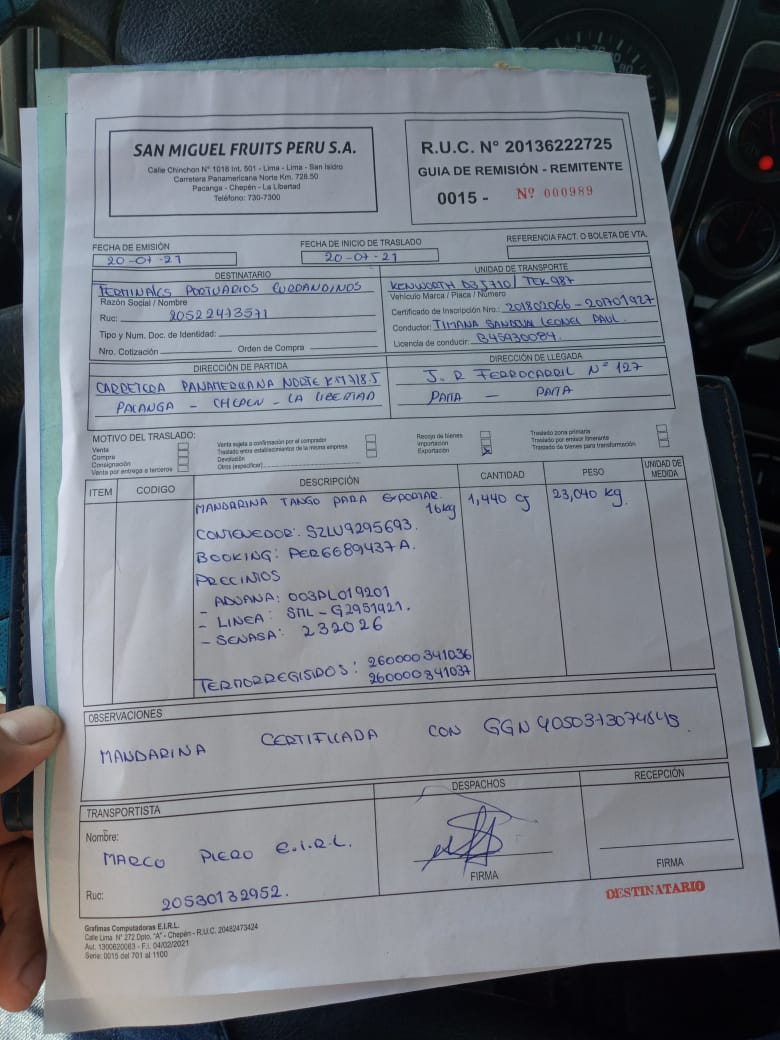 SAN MIGUEL FRUITS PERU S.A.
Calle Chinchon N° 1018 Int. 501 - Lima - Lima - San Isidro
Carretera Panamericana Norte Km. 728.50
Pacanga - Chepén - La Libertad
Teléfono: 730-7300
R.U.C. N° 20136222725
GUIA DE REMISIÓN - REMITENTE
0015 - Nº 000989
FECHA DE EMISIÓN
20-07-21
FECHA DE INICIO DE TRASLADO
20-07-21
REFERENCIA FACT. O BOLETA DE VTA.
DESTINATARIO
TERMINALES PORTUARIOS EUROANDINOS
Razón Social / Nombre
Ruc: 20522473571
Tipo y Num. Doc. de Identidad:
Nro. Cotización Orden de Compra
UNIDAD DE TRANSPORTE
KENWORTH / TEK987
Vehículo Marca / Placa / Número
Certificado de Inscripción Nro.: 201802066 - 201701927
Conductor: TIMANA SANDOVAL LEONEL PAUL.
Licencia de conducir: B45930084.
DIRECCIÓN DE PARTIDA
CARRETERA PANAMERICANA NORTE KM 718.5
PACANGA - CHEPEN - LA LIBERTAD
DIRECCIÓN DE LLEGADA
J.R FERROCARRIL N° 127
PAITA - PAITA
MOTIVO DEL TRASLADO:
Venta
Compra
Consignación
Venta por entrega a terceros
Venta sujeta a confirmación por el comprador
Traslado entre establecimientos de la misma empresa
Devolución
Otros (especificar)
Recojo de bienes
Importación
Exportación X
Traslado zona primaria
Traslado por emisor itinerante
Traslado de bienes para transformación
ITEM CODIGO DESCRIPCIÓN CANTIDAD PESO UNIDAD DE MEDIDA
MANDARINA TANGO PARA EXPORTAR. 1,440 cj 23,040 kg.
16kg
CONTENEDOR: SZLU9295693.
BOOKING: PER6689437A.
PRECINTOS
- ADUANA: 003PL019201
- LINEA: SML-G2951921.
- SENASA: 232026
TERMORREGISTROS: 260000341036
260000341037
OBSERVACIONES
MANDARINA CERTIFICADA CON GGN 4050373074848.
TRANSPORTISTA
Nombre:
MARCO PIERO E.I.R.L.
Ruc: 20530132952.
DESPACHOS
FIRMA
RECEPCIÓN
FIRMA
DESTINATARIO
Grafimas Computadoras E.I.R.L.
Calle Lima N° 272 Dpto. "A" - Chepén - R.U.C. 20482473424
Aut. 1300620063 - F.I. 04/02/2021
Serie: 0015 del 701 al 1100